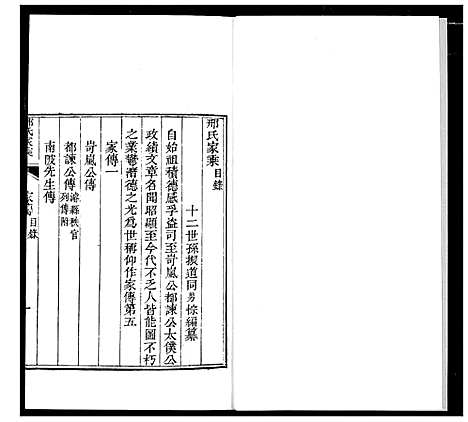 邢氏家乘目錄
十二世孫振道同男悰編纂
自始祖積德感孚盜司至岢嵐公都諫公太僕公
政績文章名聞昭顯至今代不乏人皆能圖不朽
之業鬱潛德之光為世稱仰作家傳第五
家傳一
岢嵐公傳
都諫公傳
濬縣秩官
列傳附
南陂先生傳
目錄